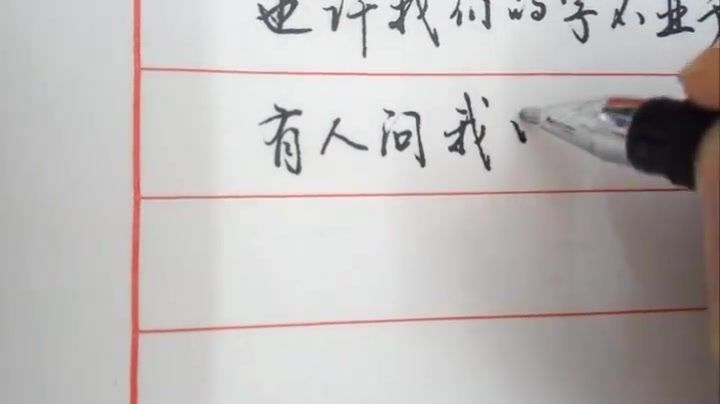 也许我们的字不
有人问我